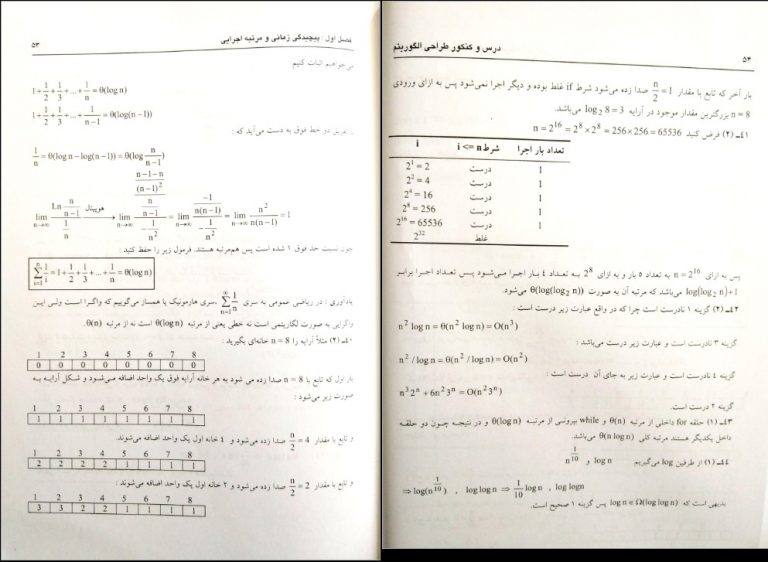 فصل اول : پیچیدگی زمانی و مرتبه اجرایی
۵۳
می‌خواهیم اثبات کنیم
1 + 1/2 + 1/3 + ... + 1/n = θ(log n)
1 + 1/2 + 1/3 + ... + 1/(n−1) = θ(log(n−1))
تفریق دو خط فوق به دست می‌آید که :
1/n = θ(log n − log(n−1)) = θ(log n/(n−1))
lim n→∞ (Ln n/(n−1)) / (1/n) هوپیتال → lim n→∞ (((n−1−n)/(n−1)²) / (n/(n−1))) / (−1/n²) = lim n→∞ (−1/(n(n−1))) / (−1/n²) = lim n→∞ n²/(n(n−1)) = 1
چون نسبت حد فوق ۱ شده است پس هم‌مرتبه هستند. فرمول زیر را حفظ کنید :
∑ i=1 n 1/i = 1 + 1/2 + 1/3 + ... + 1/n = θ(log n)
یادآوری : در ریاضی عمومی به سری ∑ n=1 ∞ 1/n ،سری هارمونیک یا همساز می‌گوییم که واگراست ولی این
واگرایی به صورت لگاریتمی است نه خطی یعنی از مرتبه θ(log n) است نه از مرتبه θ(n).
۴۰ـ (۲) مثلاً آرایه را n = 8 خانه‌ای بگیرید :
1 2 3 4 5 6 7 8
0 0 0 0 0 0 0 0
بار اول که تابع با n = 8 صدا زده می شود به هر خانه آرایه فوق یک واحد اضافه می‌شود و شکل آرایه به
صورت زیر می‌شود :
1 2 3 4 5 6 7 8
1 1 1 1 1 1 1 1
و تابع با مقدار n/2 = 4 صدا زده می‌شود و ٤ خانه اول یک واحد اضافه می‌شوند.
1 2 3 4 5 6 7 8
2 2 2 2 1 1 1 1
و تابع با مقدار n/2 = 2 صدا زده می‌شود و ۲ خانه اول یک واحد اضافه می‌شوند :
1 2 3 4 5 6 7 8
3 3 2 2 1 1 1 1
درس و کنکور طراحی الگوریتم
۵۴
بار آخر که تابع با مقدار n/2 = 1 صدا زده می‌شود شرط if غلط بوده و دیگر اجرا نمی‌شود پس به ازای ورودی
n = 8 بزرگترین مقدار موجود در آرایه log₂ 8 = 3 می‌باشد.
۴۱ـ (۲) فرض کنید n = 2¹⁶ = 2⁸ × 2⁸ = 256 × 256 = 65536
i شرط i <= n تعداد بار اجرا
2¹ = 2 درست 1
2² = 4 درست 1
2⁴ = 16 درست 1
2⁸ = 256 درست 1
2¹⁶ = 65536 درست 1
2³² غلط
پس به ازای n = 2¹⁶ به تعداد ۵ بار و به ازای 2⁸ به تعداد ٤ بار اجرا می‌شود پس تعداد اجرا برابر
log(log₂ n) + 1 می‌باشد که مرتبه آن به صورت θ(log(log₂ n)) می‌شود.
۴۲ـ (۲) گزینه ۱ نادرست است چرا که در واقع عبارت زیر درست است :
n² log n = θ(n² log n) = O(n³)
گزینه ۳ نادرست است و عبارت زیر درست می‌باشد :
n² / log n = θ(n² / log n) = O(n²)
گزینه ٤ نادرست است و عبارت زیر به جای آن درست است :
n³ 2ⁿ + 6n² 3ⁿ = O(n² 3ⁿ)
گزینه ۲ درست است.
۴۳ـ (۱) حلقه for داخلی از مرتبه θ(n) و while بیرونی از مرتبه θ(log n) و در نتیجه چون دو حلقه
داخل یکدیگر هستند مرتبه کلی θ(n log n) می‌باشد.
۴۴ـ (۱) از طرفین log می‌گیریم log n و n^(1/10)
⇒ log(n^(1/10)) , log log n ⇒ 1/10 log n , log log n
بدیهی است که log n ∈ Ω(log log n) پس گزینه ۱ صحیح است.